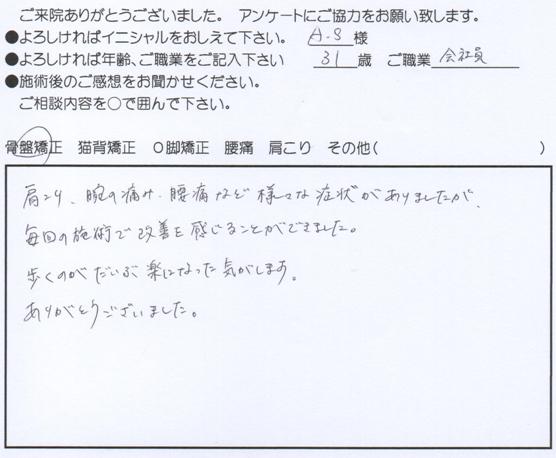 ご来院ありがとうございました。 アンケートにご協力をお願い致します。
●よろしければイニシャルをおしえて下さい。 A.S 様
●よろしければ年齢、ご職業をご記入下さい 31 歳 ご職業 会社員
●施術後のご感想をお聞かせください。
ご相談内容を○で囲んで下さい。
骨盤矯正 猫背矯正 O脚矯正 腰痛 肩こり その他( )
肩こり、腕の痛み、腰痛など様々な症状がありましたが、
毎回の施術で改善を感じることができました。
歩くのがだいぶ楽になった気がします。
ありがとうございました。